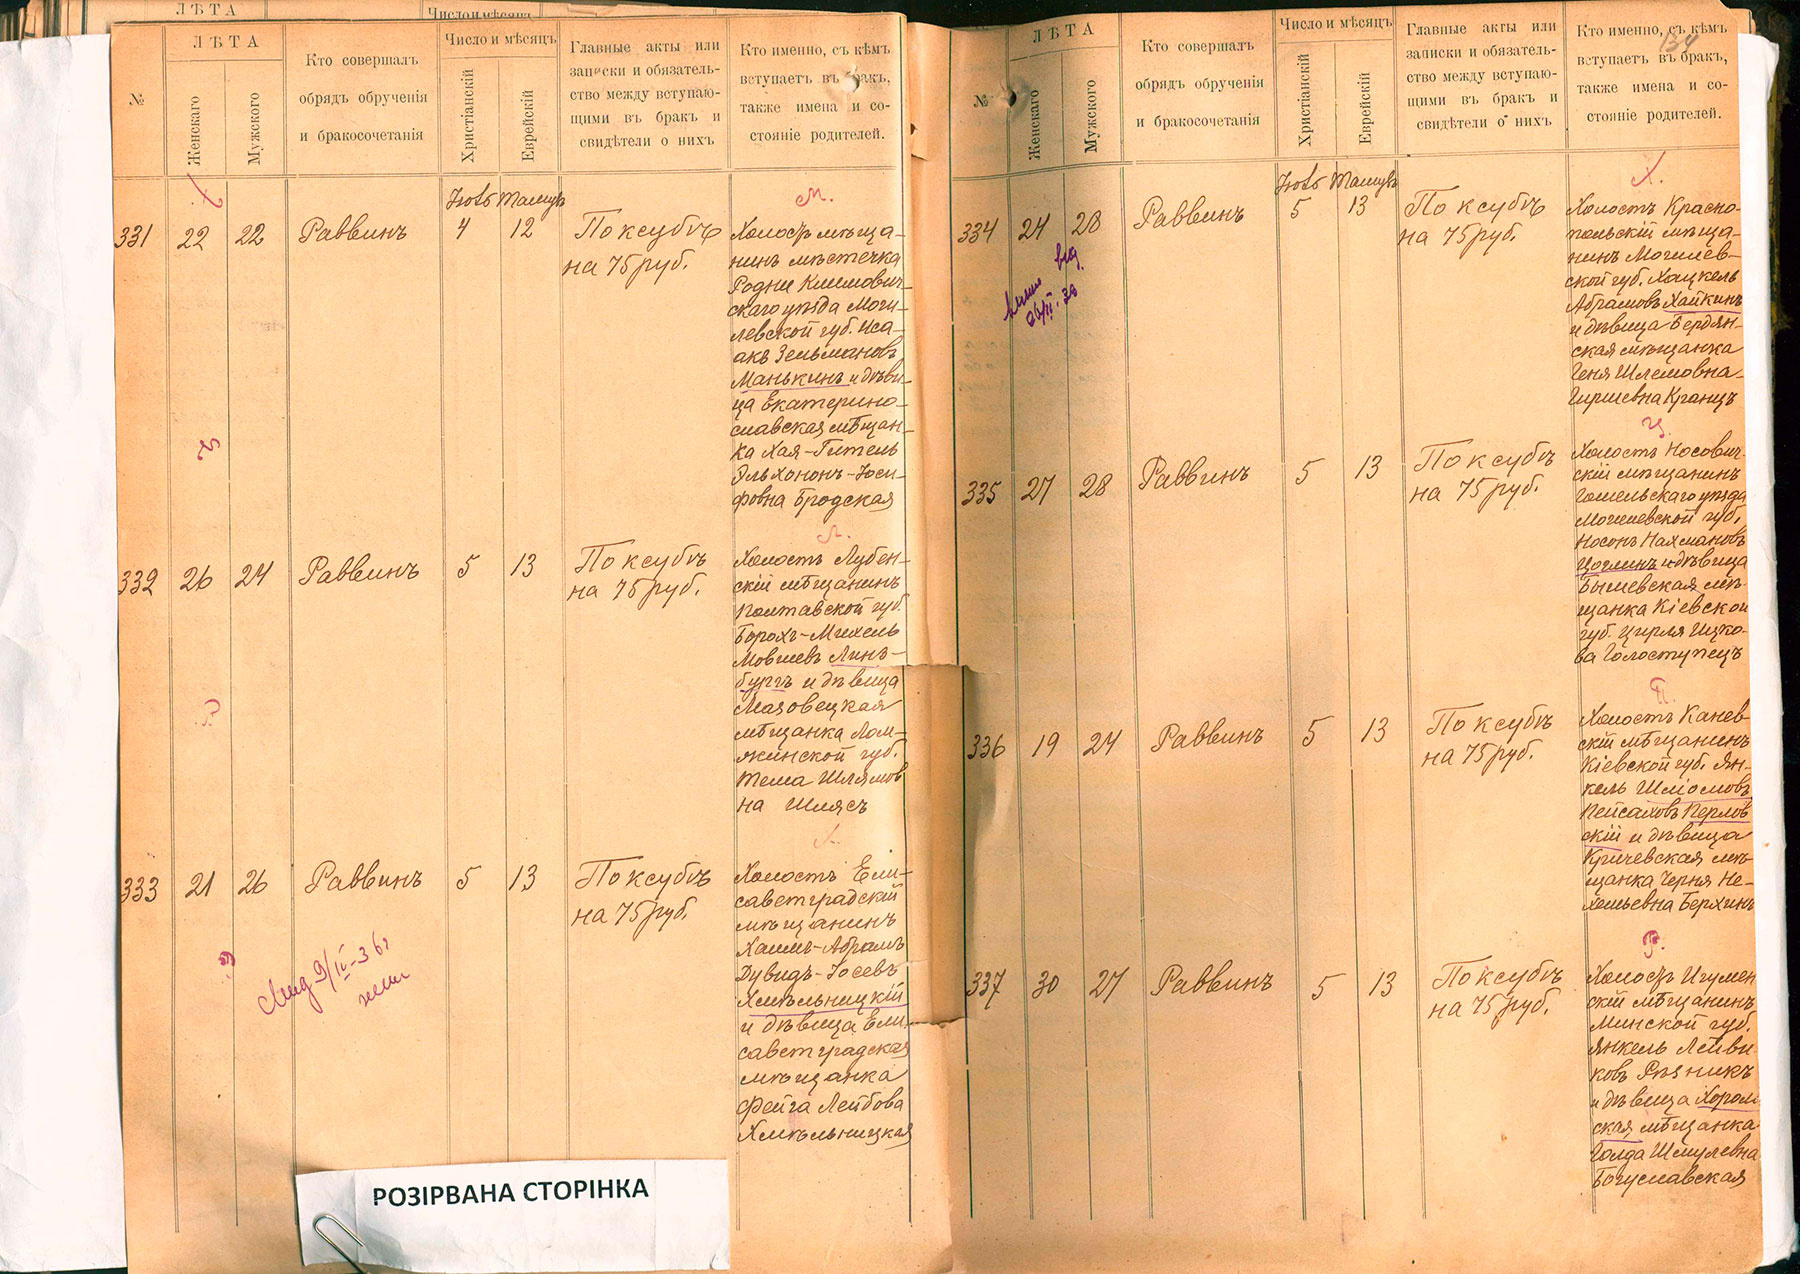 ЛѢТА
Число и мѣсяцъ
№
ЛѢТА
Женскаго
Мужского
Кто совершалъ
обрядъ обрученія
и бракосочетанія
Число и мѣсяцъ
Христіанскій
Еврейскій
Главные акты или
записки и обязатель-
ство между вступаю-
щими въ бракъ и
свидѣтели о нихъ
Кто именно, съ кѣмъ
вступаетъ въ бракъ,
также имена и со-
стояніе родителей.
М.
331 22 22 Раввинъ 4 12
По ксубѣ
на 75 руб.
Холостъ мѣща-
нинъ мѣстечка
Родни Климович-
скаго уѣзда Моги-
левской губ. Иса-
акъ Зельмановъ
Манькинъ и дѣви-
ца Екатерино-
славская мѣщан-
ка Хая-Гитель
Эльхононъ-Іоси-
фовна Бродская
Л.
332 26 24 Раввинъ 5 13
По ксубѣ
на 75 руб.
Холостъ Лубен-
скій мѣщанинъ
Полтавской губ.
Борохъ-Михель
Мовшевъ Линъ-
бургъ и дѣвица
Мазовецкая
мѣщанка Лом-
жинской губ.
Тема Шлямов
на Шлясъ
333 21 26 Раввинъ 5 13
По ксубѣ
на 75 руб.
Холостъ Ели-
саветградскій
мѣщанинъ
Хаимъ-Абрамъ
Дувидъ-Іосевъ
Хмѣльницкій
и дѣвица Ели-
саветградская
мѣщанка
Фейга Лейбова
Хмѣльницкая
9/II-36г
РОЗІРВАНА СТОРІНКА
134
№
ЛѢТА
Женскаго
Мужского
Кто совершалъ
обрядъ обрученія
и бракосочетанія
Число и мѣсяцъ
Христіанскій
Еврейскій
Главные акты или
записки и обязатель-
ство между вступаю-
щими въ бракъ и
свидѣтели о нихъ
Кто именно, съ кѣмъ
вступаетъ въ бракъ,
также имена и со-
стояніе родителей.
Х.
334 24 28 Раввинъ 5 13
По ксубѣ
на 75 руб.
Холостъ Красно-
польскій мѣща-
нинъ Могилев-
ской губ. Хацкель
Абрамовъ Хайкинъ
и дѣвица Бердян-
ская мѣщанка
Геня Шлемовна-
Гиршевна Кранцъ
Ц.
335 27 28 Раввинъ 5 13
По ксубѣ
на 75 руб.
Холостъ Носович-
скій мѣщанинъ
Гомельскаго уѣзда
Могилевской губ.
Носонъ Нахмановъ
Цоглинъ и дѣвица
Бышевская мѣ-
щанка Кіевской
губ. Цирля Ицко-
ва Голоступецъ
П.
336 19 24 Раввинъ 5 13
По ксубѣ
на 75 руб.
Холостъ Канев-
скій мѣщанинъ
Кіевской губ. Ян-
кель Шліомовъ
Пейсаховъ Перлов
скій и дѣвица
Кричевская мѣ-
щанка Черня Не-
хемьевна Берхинъ
Р.
337 30 27 Раввинъ 5 13
По ксубѣ
на 75 руб.
Холостъ Игумен
скій мѣщанинъ
Минской губ.
Янкель Лейви-
ковъ Рѣзникъ
и дѣвица Хорол
ская мѣщанка
Голда Шмулевна
Богуславская